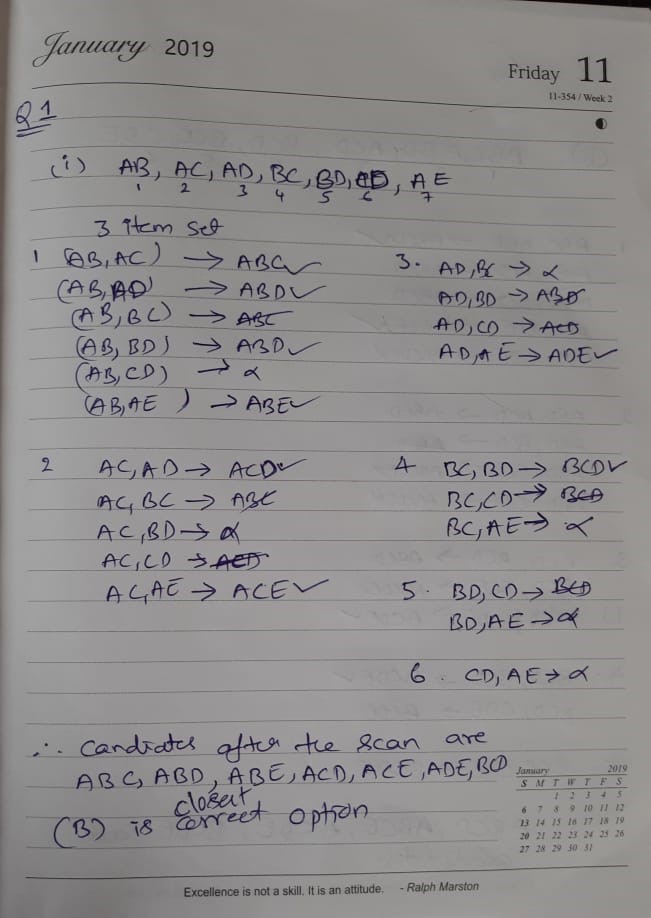 January 2019
Friday 11
11-354 / Week 2
Q1
(i) AB, AC, AD, BC, BD, CD, AE
1 2 3 4 5 6 7
3 item set
1 (AB, AC) → ABC✓
(AB, AD) → ABD✓
(AB, BC) → ABC
(AB, BD) → ABD✓
(AB, CD) → α
(AB, AE ) → ABE✓
2 AC, AD → ACD✓
AC, BC → ABC
AC, BD → α
AC, CD → ACD
AC, AE → ACE✓
3. AD, BC → α
AD, BD → ABD
AD, CD → ACD
AD, AE → ADE✓
4 BC, BD → BCD✓
BC, CD → BCD
BC, AE → α
5. BD, CD → BCD
BD, AE → α
6. CD, AE → α
∴ Candiates after the scan are
ABC, ABD, ABE, ACD, ACE, ADE, BCD
closest
(B) is correct option
January 2019
S M T W T F S
1 2 3 4 5
6 7 8 9 10 11 12
13 14 15 16 17 18 19
20 21 22 23 24 25 26
27 28 29 30 31
Excellence is not a skill. It is an attitude. - Ralph Marston